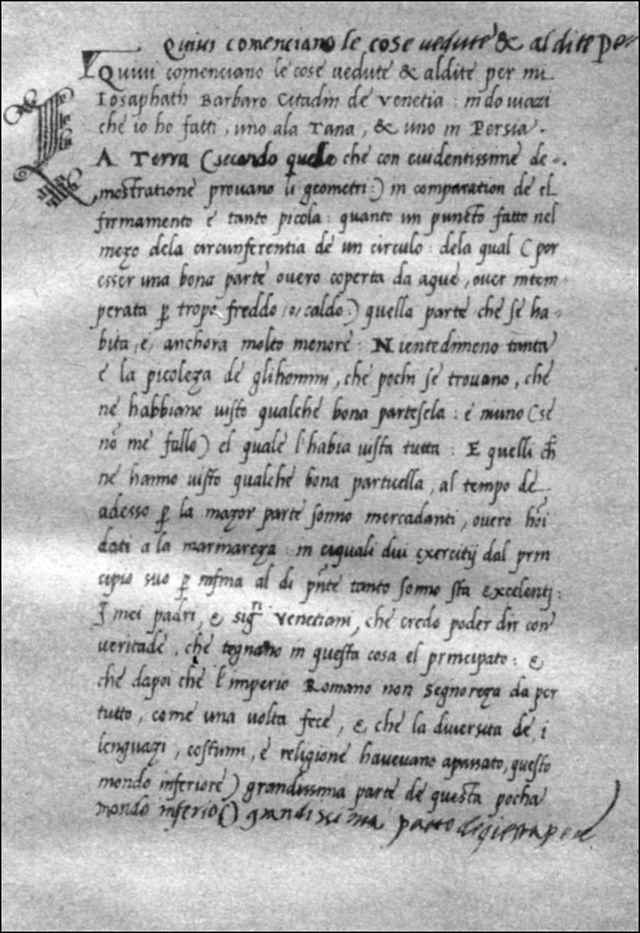 Quiui comenciano le cose uedute & aldite per
Quiui comenciano le cose uedute & aldite per mi
Iosaphath Barbaro Citadin de Venetia : in do uiazi
che io ho fatti, uno ala Tana, & uno in Persia.
LA Terra (secondo quelo che con euidentissime de-
mostratione prouano li geometri:) in comparation de el
firmamento e tanto picola : quanto un puncto fatto nel
mezo dela circunferentia de un circulo : dela qual (por
esser una bona parte ouero coperta da aque, ouer intem-
perata ꝑ tropo freddo /o/ caldo:) quella parte che se ha-
bita, e, anchora molto menore : Nientedimeno tanta
e la picoleza de glihomini, che pochi se trouano, che
ne habbiano uisto qualche bona partesela : e niuno (se
nõ me fallo) el quale l'habia uista tutta : E quelli ch̃
ne hanno uisto qualche bona particella, al tempo de
adesso ꝑ la mazor parte sonno mercadanti, ouero hoĩ
dati a la marinareza : in eiquali dui exercitij dal prin
cipio suo ꝑ infina al di pñte tanto sonno sta excelenti
I mei padri, e sig.ri Venetiani, che credo poder dir con
veritade, che tegnano in questa cosa el principato : e
che dapoi che l'imperio Romano non segnoreza da per
tutto, come una uolta fece, e, che la diuersita de, i
lenguazi, costumi, e religione haueuano apassato, questo
mondo inferiore) grandissima parte de questa pocha
mondo inferio() grandissima parte